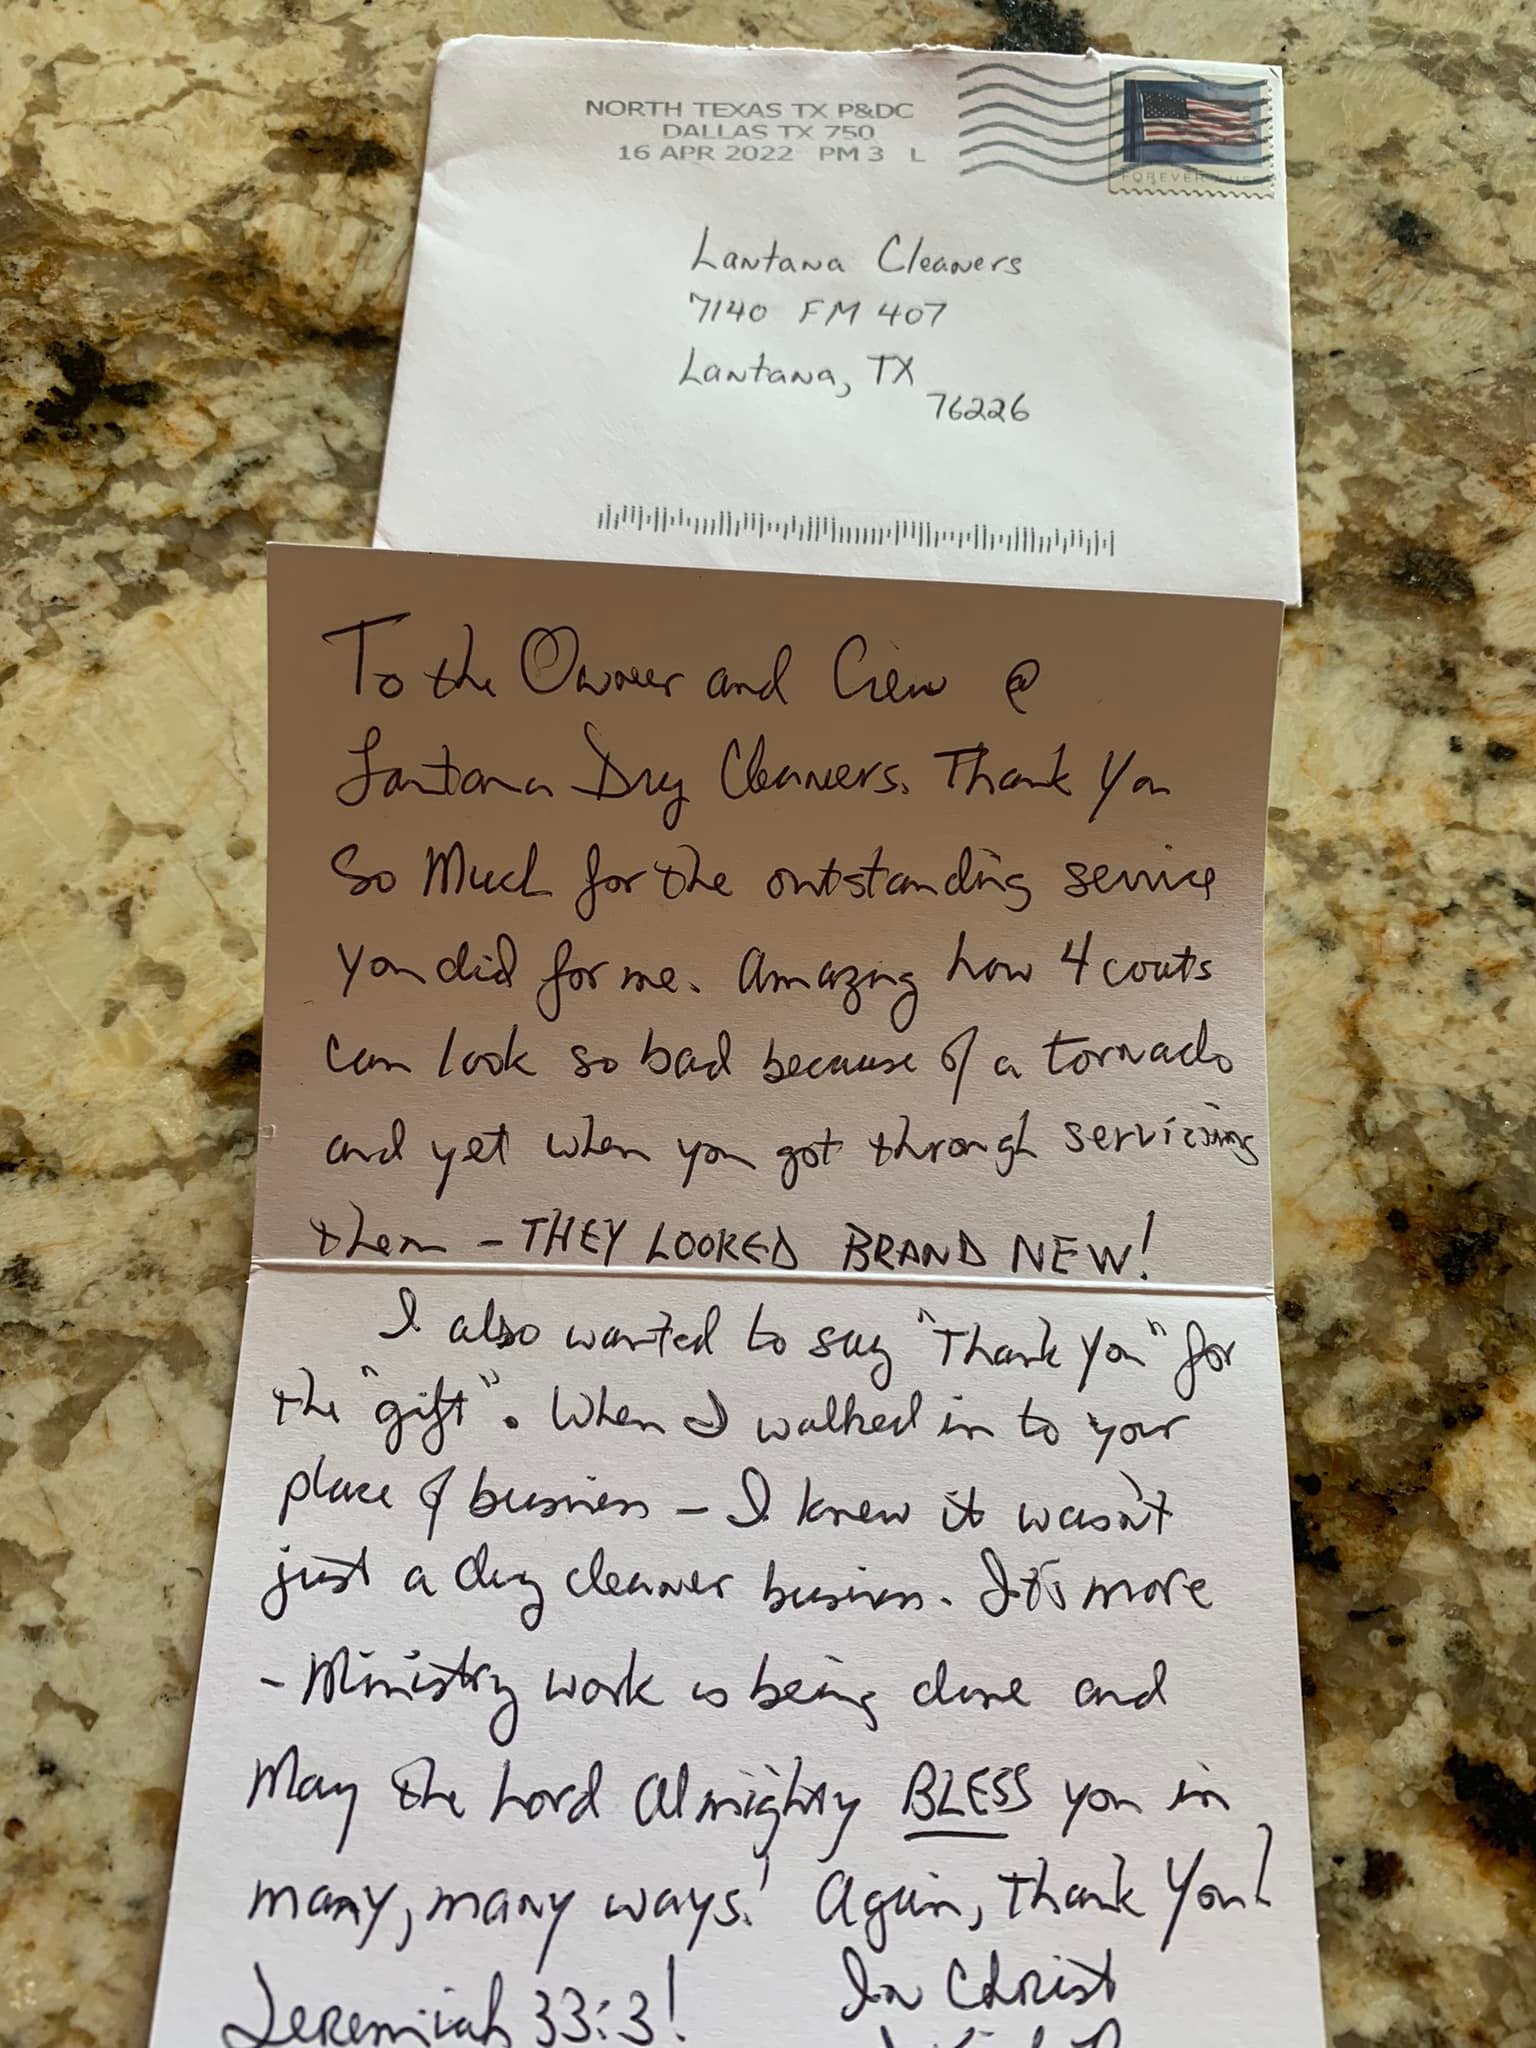 NORTH TEXAS TX P&DC
DALLAS TX 750
16 APR 2022 PM 3 L
FOREVER
Lantana Cleaners
7140 FM 407
Lantana, TX
76226
To the Owner and Crew @
Lantana Dry Cleaners. Thank You
So Much for the outstanding service
you did for me. Amazing how 4 coats
can look so bad because of a tornado
and yet when you got through servicing
them - THEY LOOKED BRAND NEW!
I also wanted to say "Thank You" for
the "gift". When I walked in to your
place of business - I knew it wasn't
just a dry cleaner business. It's more
- Ministry work is being done and
May the Lord Almighty BLESS you in
many, many ways! Again, Thank You!
Jeremiah 33:3! In Christ